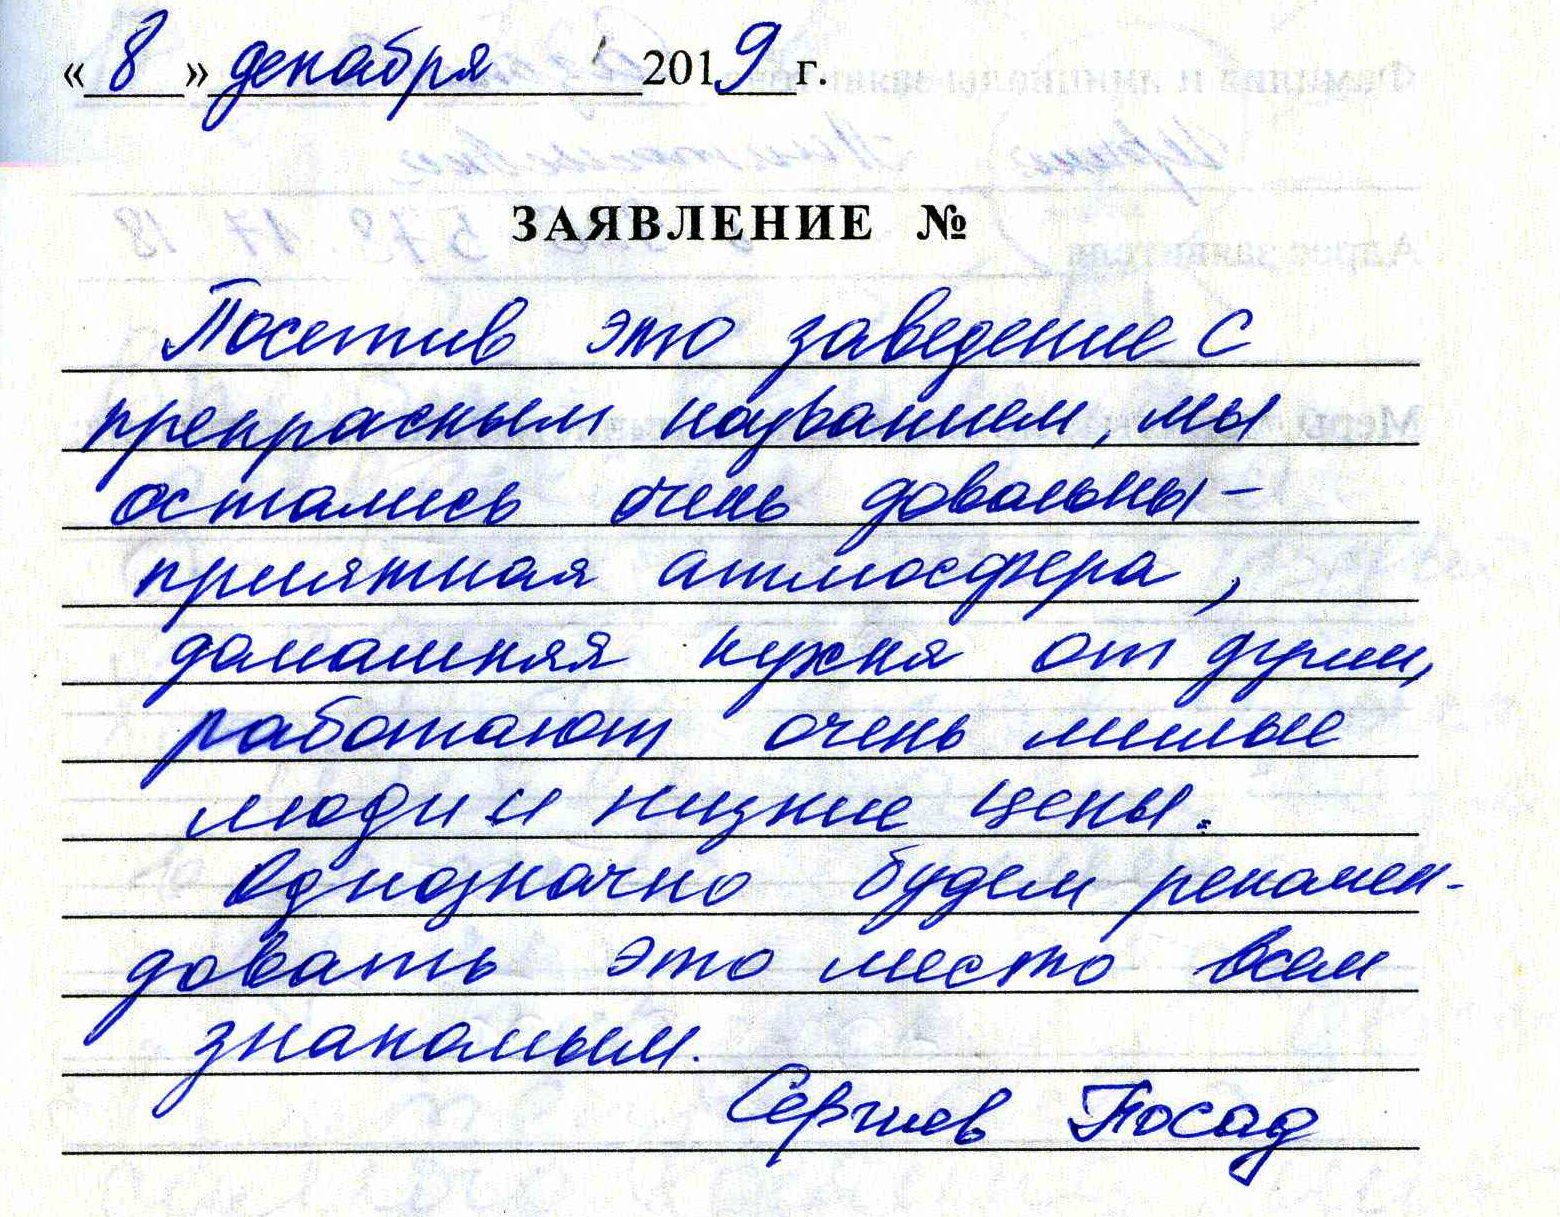 «8» декабря 2019 г.
ЗАЯВЛЕНИЕ №
Посетив это заведение с
прекрасным названием, мы
остались очень довольны -
приятная атмосфера,
домашняя кухня от души,
работают очень милые
люди и низкие цены.
Однозначно будем рекомен-
довать это место всем
знакомым.
Сергиев Посад